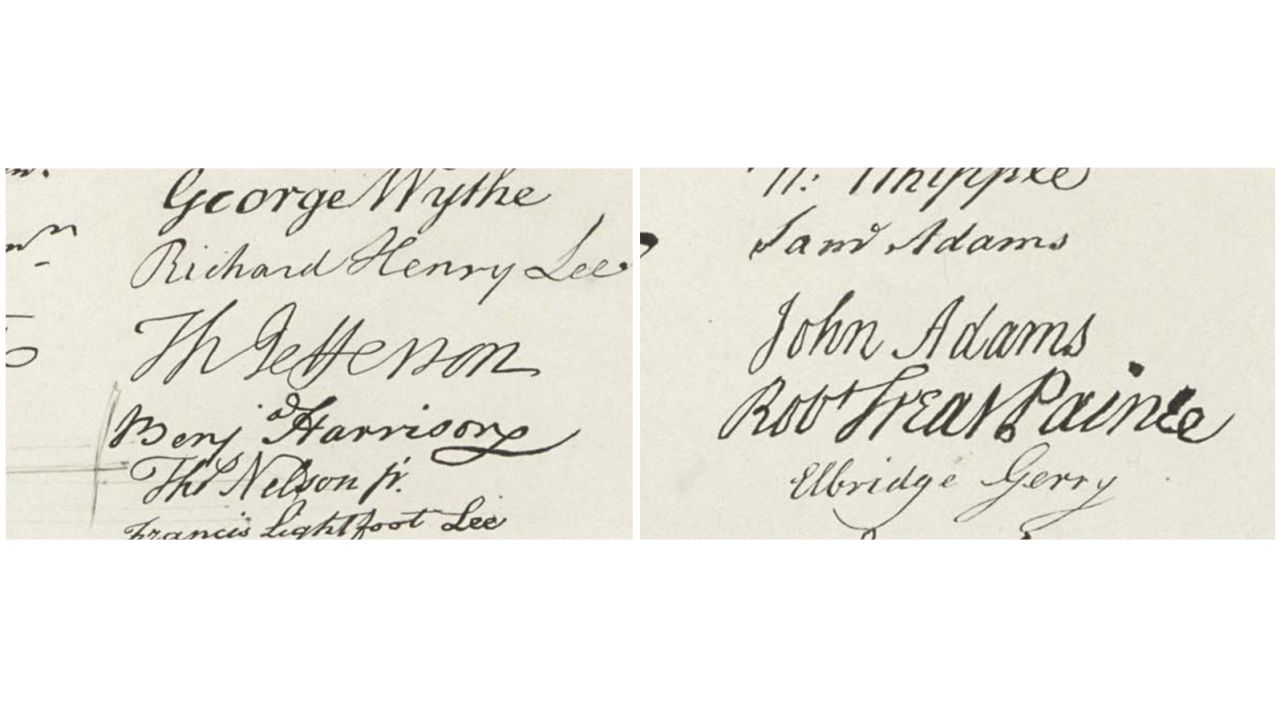 George Wythe
Richard Henry Lee
Th Jefferson
Benj Harrison
Thos Nelson jr.
Francis Lightfoot Lee
Whipple
Saml Adams
John Adams
Robt Treat Paine
Elbridge Gerry